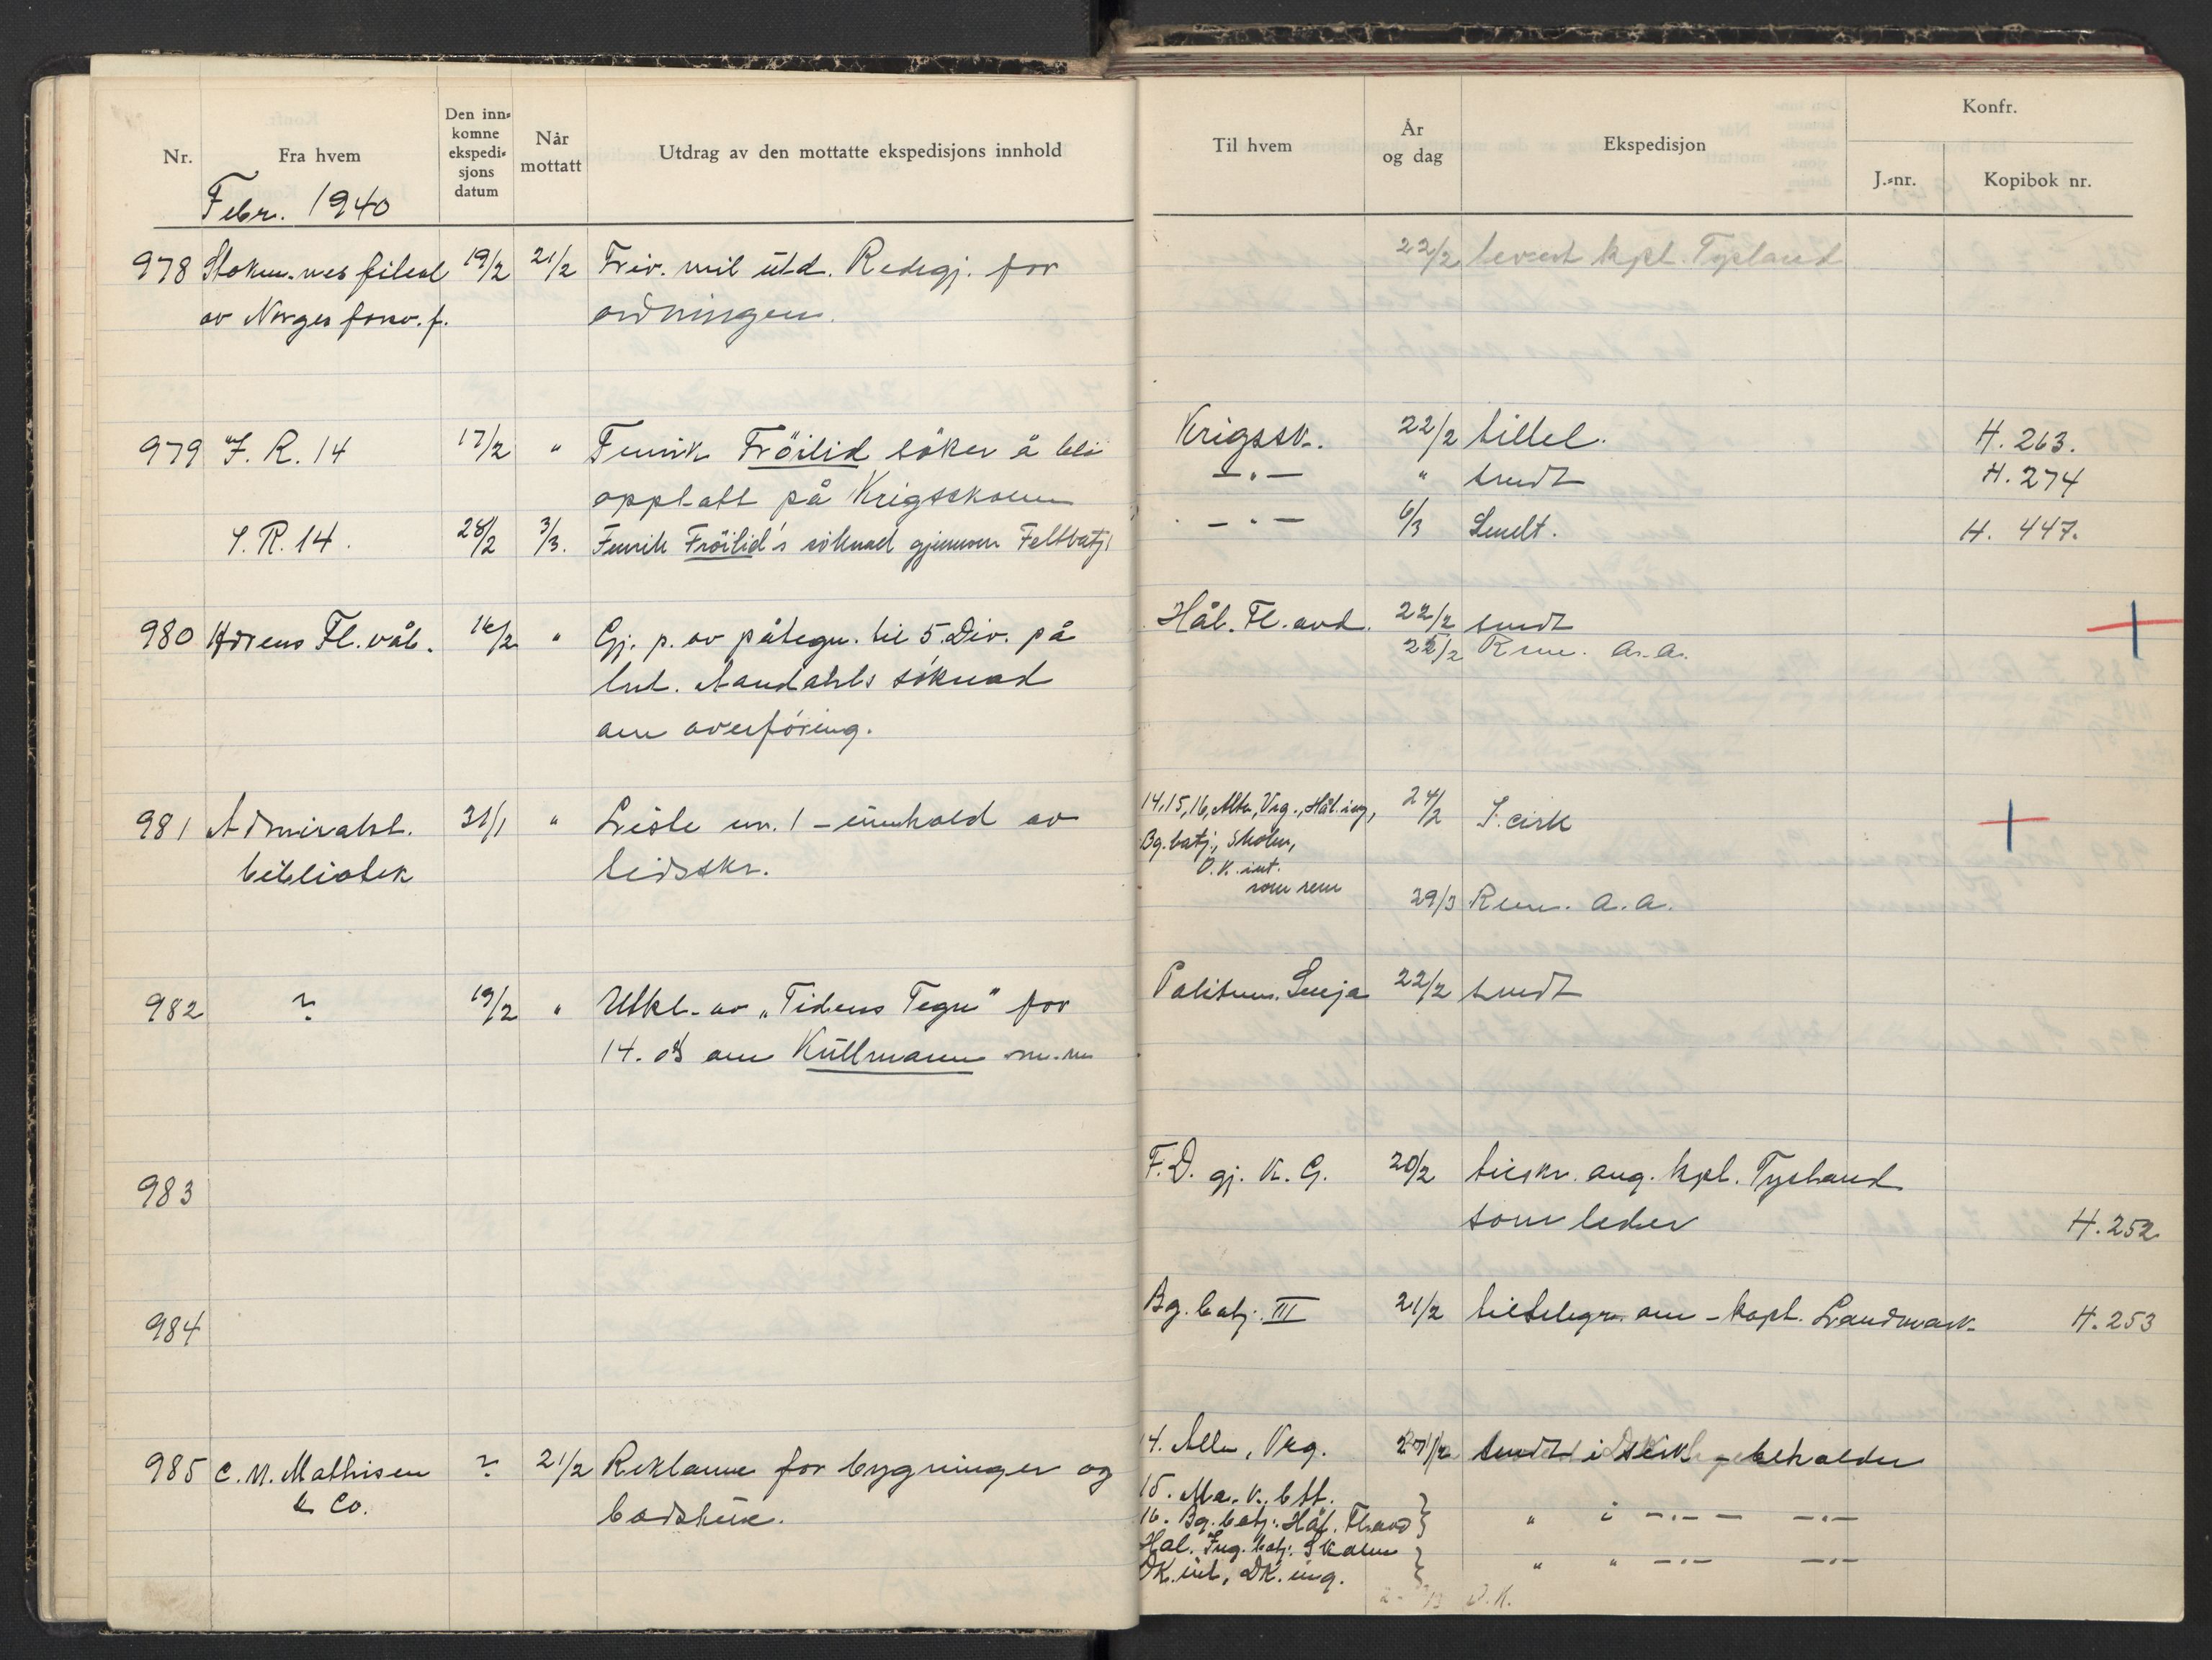 Nr.
Fra hvem
Den inn-
komne
ekspedi-
sjons
datum
Når
mottatt
Utdrag av den mottatte ekspedisjons innhold
Til hvem
År
og dag
Ekspedisjon
Konfr.
J.-nr.
Kopibok nr.
Febr. 1940
978 Stokm.nes filial 19/2 21/2 Friv. mil utd. Redegj. for 22/2 levert kpt.
av Norges forsv. f. ordningen.
979 I. R. 14 17/2 " Fenrik Fröilid söker å bli Krigssk. 22/2 tillel. H. 263.
opptatt på Krigsskolen —"— " sendt H. 274
I. R. 14. 28/2 3/3. Fenrik Fröilid's söknad gjennom Feltbatj. —"— 6/3 Sendt. H. 447.
980 Hærens Fl. våb. 16/2 " Gj. p. av påtegn. til 5. Div. på Hål. Fl. avd. 22/2 sendt
lnt. Aandahls söknad 22/2 Rem. a.a.
om overföring.
981 Admiralst. 31/1 " Liste nr. 1 – innhold av 14, 15, 16, Alta, Vrg., Hål. ing, 24/2 S. cirk
Bg. batj., Skolen,
bibliotek tidsskr. D.K. int.
som rem 29/3 Rem. a.a.
982 ? 19/2 " Utkl. av „Tidens Tegn" for Politim. Senja 22/2 sendt
14. ds om Kullmann m.m
983 F.D. gj. K.G. 20/2 tilskr. ang. kpt.
som leder H. 252
984 Bg. batj. III 21/2 tiltelegr. om – kapt. Landmark H. 253
985 C. M. Mathisen ? 21/2 Reklame for bygninger og 14. Alta, Vrg. sendt i – beholder
& Co. badstue. 15. Ma. K. btt.
16. Bg. batj. Hål. Fl. avd } " i —"— —"—
Hål. Ing. batj. Skolen
DK. int, DK. ing. } " " —"— —"—
D.K.